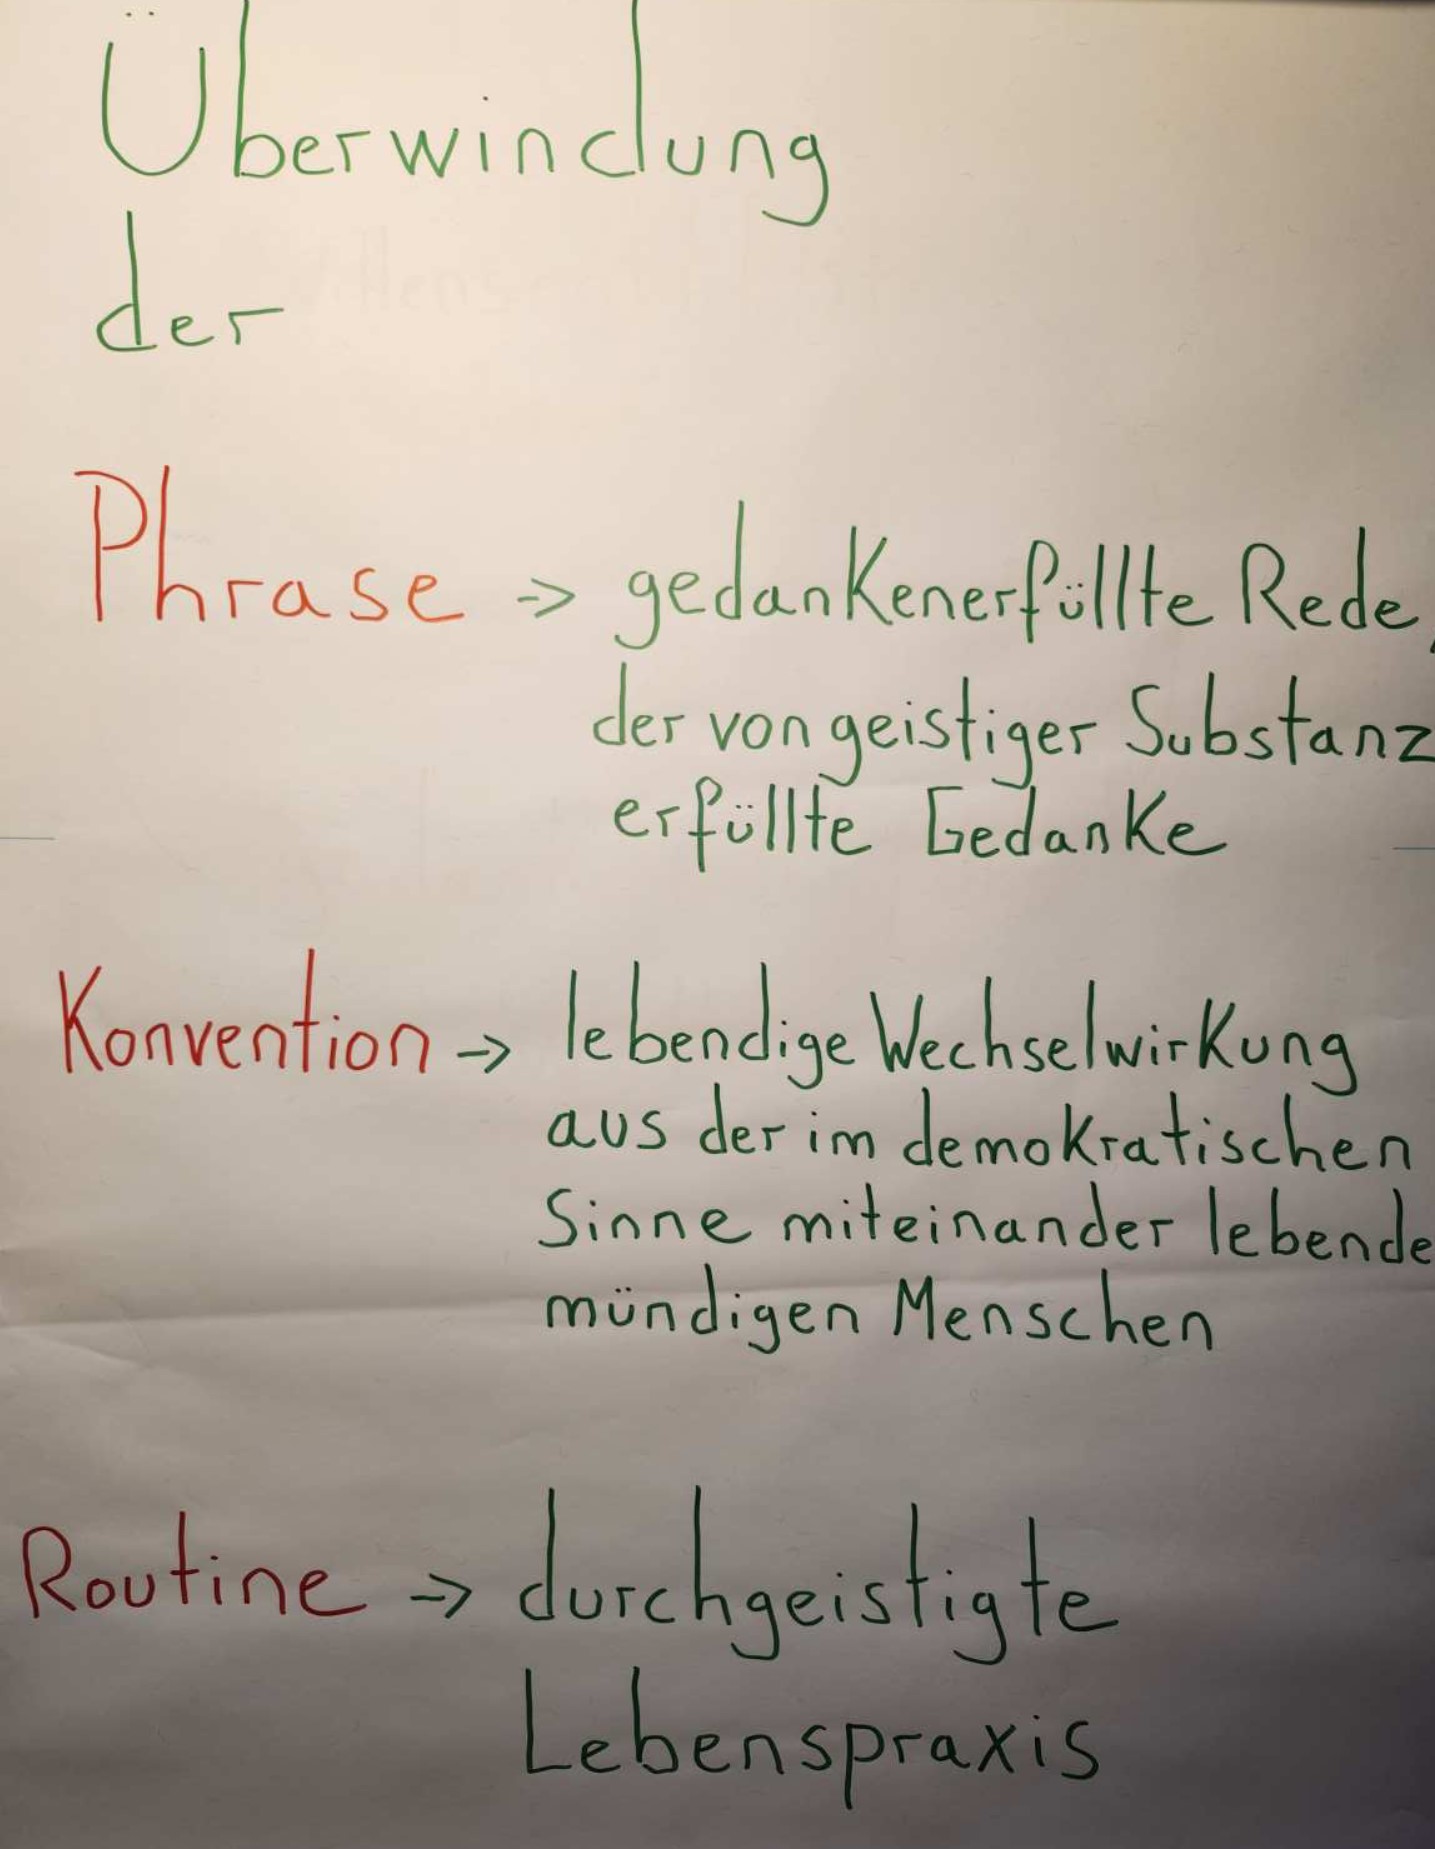 Überwindung
der
Phrase -> gedankenerfüllte Rede,
der von geistiger Substanz
erfüllte Gedanke
Konvention -> lebendige Wechselwirkung
aus der im demokratischen
Sinne miteinander lebende
mündigen Menschen
Routine -> durchgeistigte
Lebenspraxis